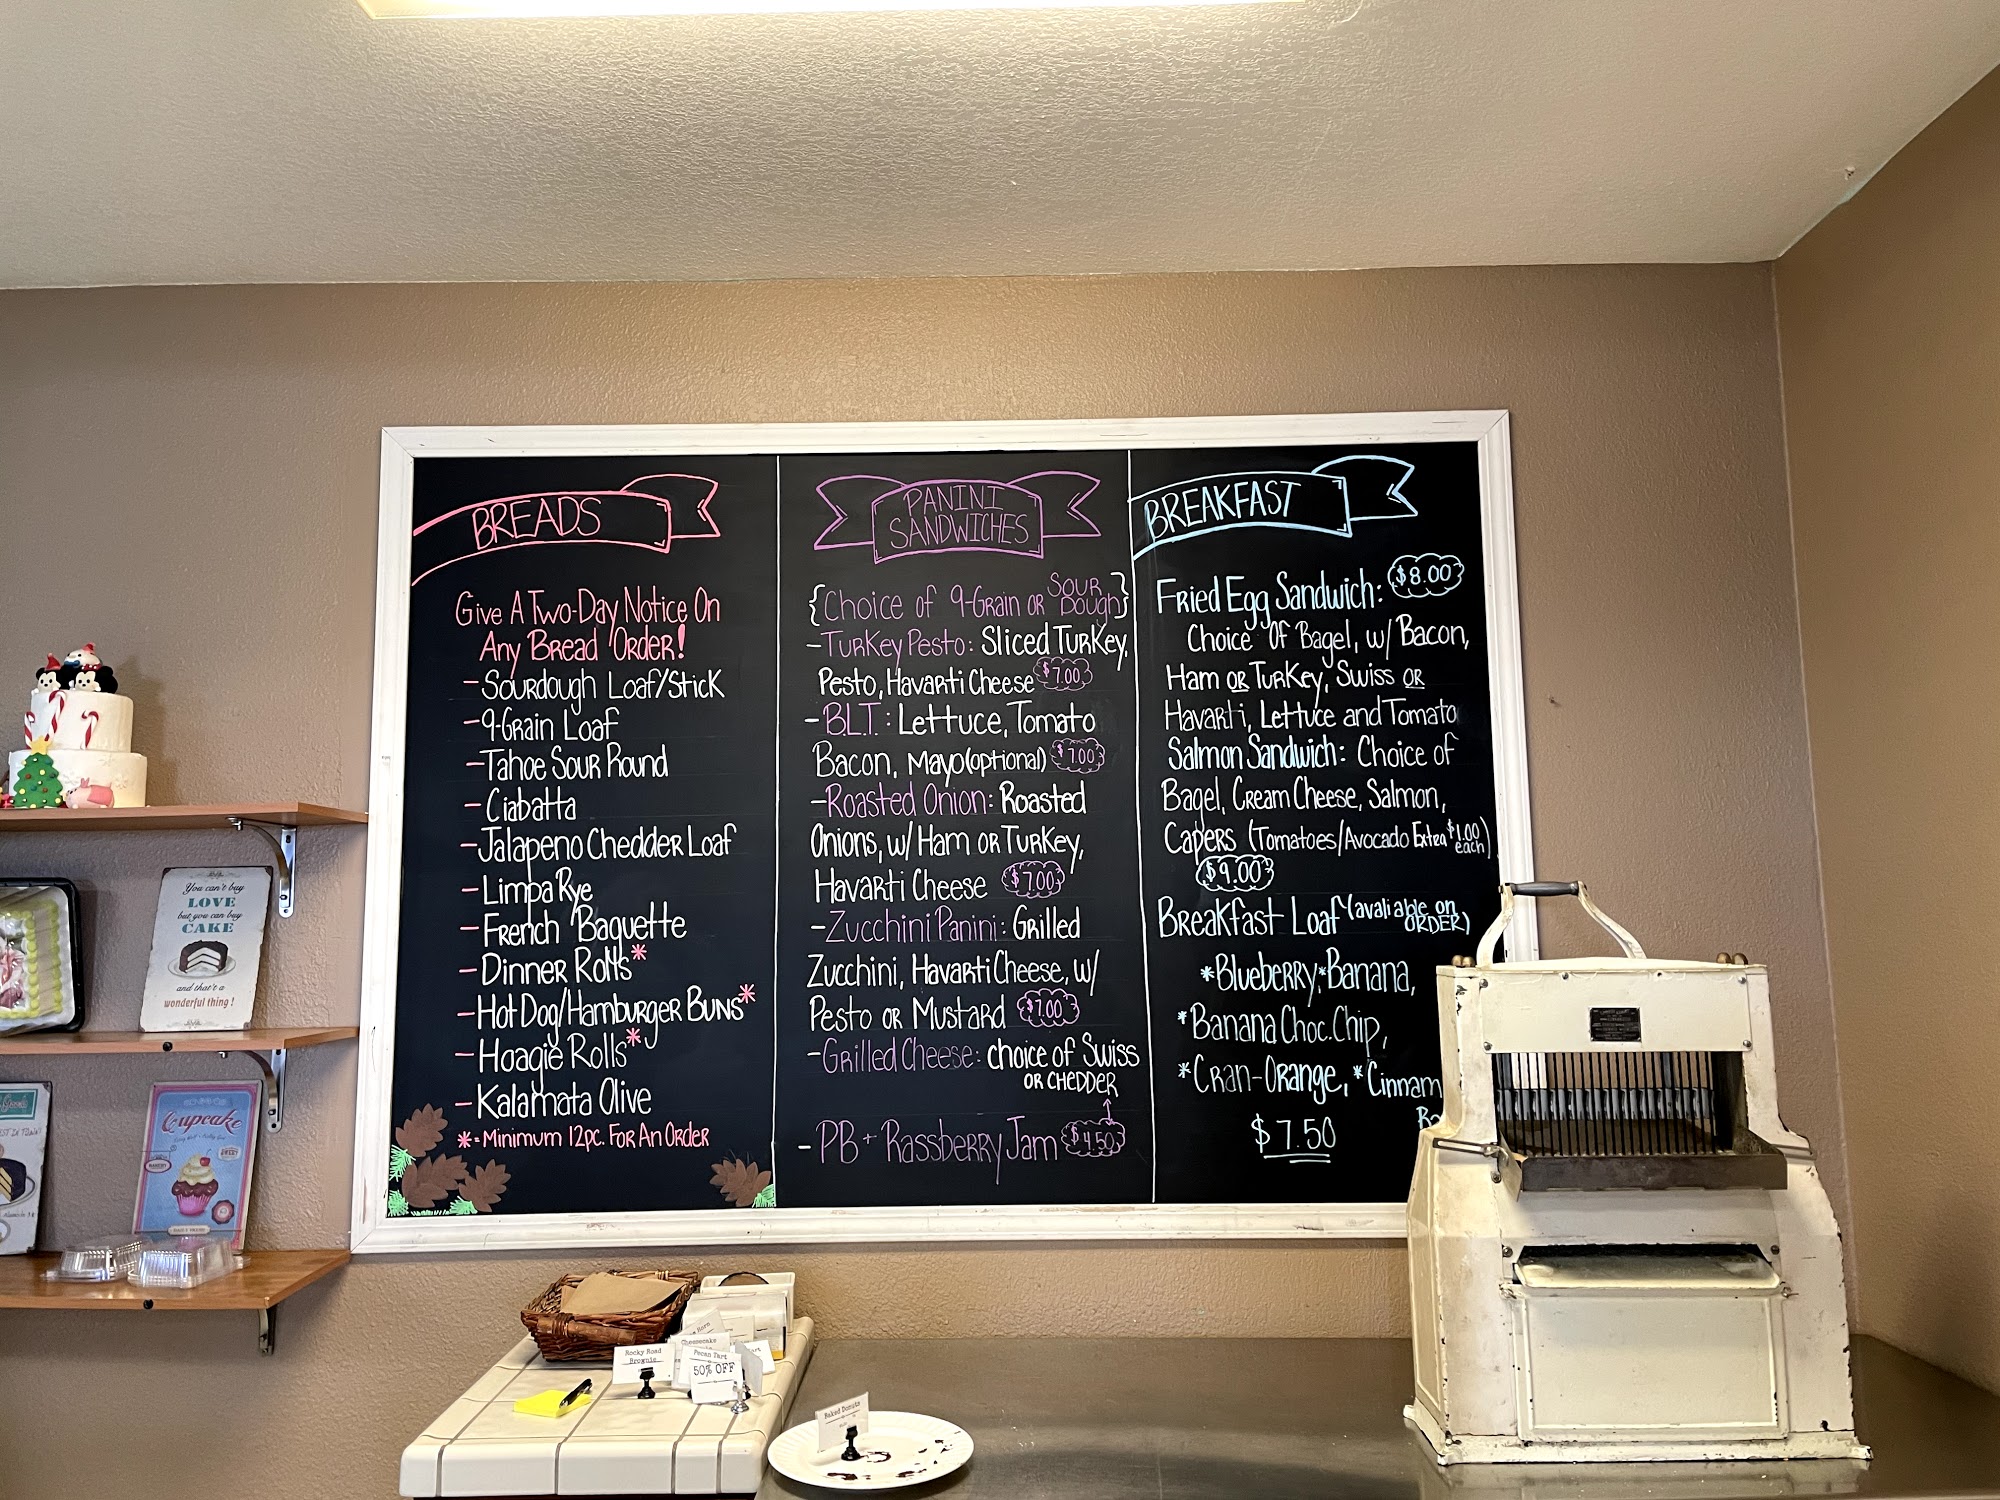 BREADS
Give A Two-Day Notice On
Any Bread Order!
-Sourdough Loaf/Stick
-9-Grain Loaf
-Tahoe Sour Round
-Ciabatta
-Jalapeno Chedder Loaf
-Limpa Rye
-French Baguette
-Dinner Rolls*
-Hot Dog/Hamburger Buns*
-Hoagie Rolls*
-Kalamata Olive
*=Minimum 12pc. For An Order
PANINI
SANDWICHES
{Choice of 9-Grain or Sour Dough}
-Turkey Pesto: Sliced Turkey,
Pesto, Havarti Cheese $7.00
-B.L.T.: Lettuce, Tomato
Bacon, Mayo (optional) $7.00
-Roasted Onion: Roasted
Onions, w/ Ham or Turkey,
Havarti Cheese $7.00
-Zucchini Panini: Grilled
Zucchini, Havarti Cheese, w/
Pesto or Mustard $7.00
-Grilled Cheese: choice of Swiss
or chedder
-PB + Rassberry Jam $4.50
BREAKFAST
Fried Egg Sandwich: $8.00
Choice Of Bagel, w/ Bacon,
Ham or Turkey, Swiss or
Havarti, Lettuce and Tomato
Salmon Sandwich: Choice of
Bagel, Cream Cheese, Salmon,
Capers (Tomatoes/Avocado Extra $1.00 each)
$9.00
Breakfast Loaf (avaliable on
order)
*Blueberry, *Banana,
*Banana Choc. Chip,
*Cran-Orange, *Cinnam
$7.50
You can't buy
LOVE
but you can buy
CAKE
and that's a
wonderful thing!
Cupcake
Rocky Road
Brownie
Cheesecake
Pecan Tart
50% OFF
Baked Donuts